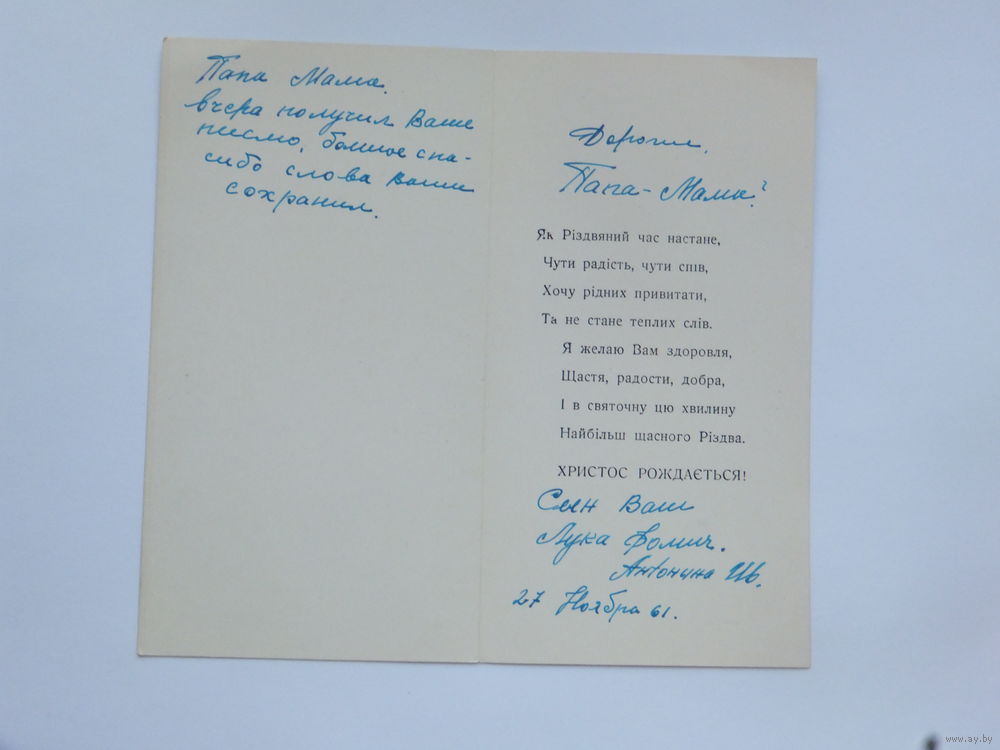 Папа Мама.
вчера получил Ваше
писмо, болшое спа-
сибо слова Ваши
сохранил.
Дорогие,
Папа - Мама!
Як Різдвяний час настане,
Чути радість, чути спів,
Хочу рідних привитати,
Та не стане теплих слів.
Я желаю Вам здоровля,
Щастя, радости, добра,
І в святочну цю хвилину
Найбільш щасного Різдва.
ХРИСТОС РОЖДАЄТЬСЯ!
Сын Ваш
Лука Фомич.
Антонина Ив.
27 Ноября 61.
www.ay.by